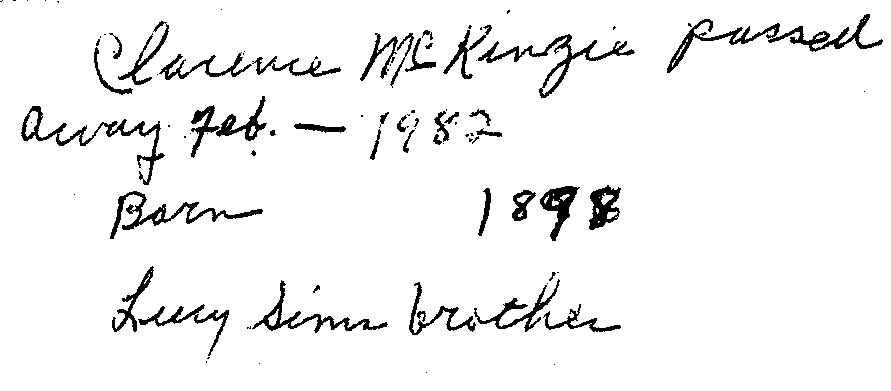 Clarence McKinzie passed
away Feb. — 1982
Born 1898
Lucy Sims brother